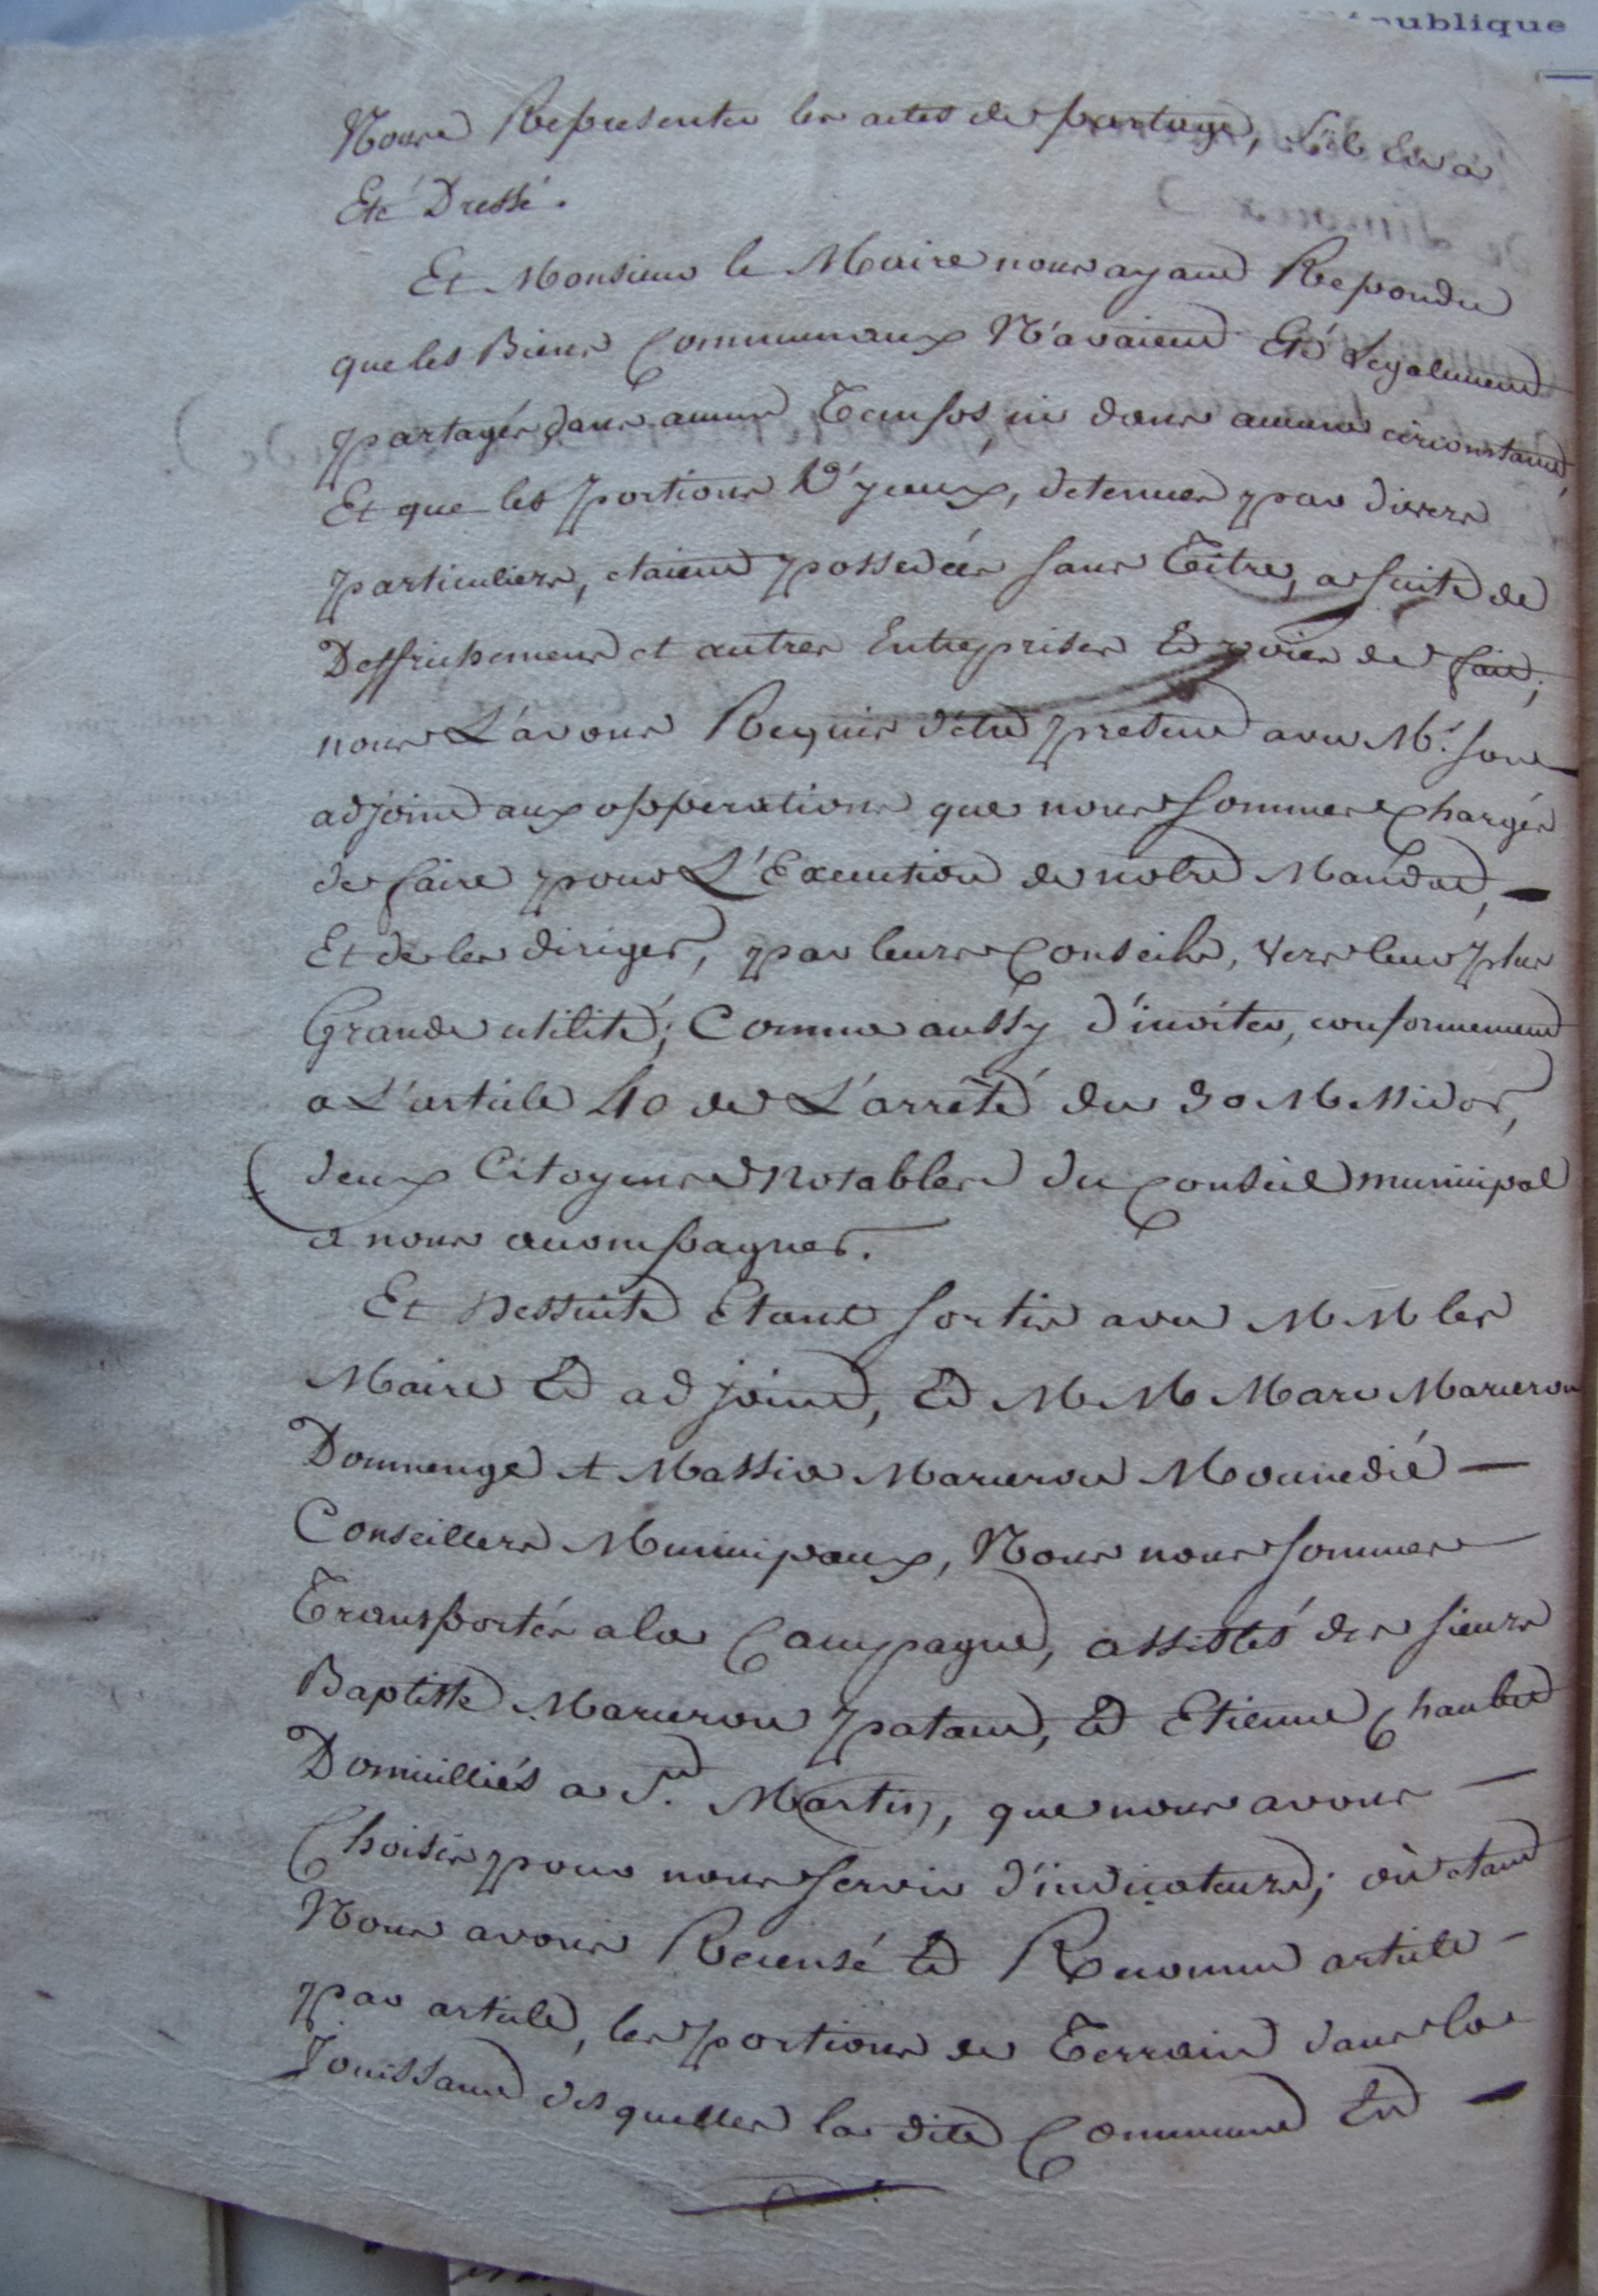 publique
Nous Representer les actes de partage, s'il en a
Eté Dressé.
Et Monsieur le Maire nous ayant Repondu
que les Biens Communaux N'avaient Eté Legalement
partagés dans aucun Temps, ni dans aucune circonstance,
Et que les portions D'yceux, detenues par divers
particuliers, etaient possedées sans Titre, a suite de
Deffrichemens et autres Entreprises Et voies de fait;
nous L'avons Requis d'etre present avec Mr. son
adjoint aux opperations que nous sommes chargés
de faire pour L'Execution de notre Mandat,
Et de les diriger, par leurs Conseils, vers leur plus
Grande utilité; Comme aussy d'inviter, conformement
a L'article 40 de L'arrêté du 30 Messidor,
deux Citoyens Notables du Conseil municipal
a nous accompagner.
Et Dessuite Etant sortis avec M M les
Maire Et adjoint, Et M M Marc Marcerou
Dommenge et Massia Marcerou Mounedié
Conseillers Municipaux, Nous nous sommes
Transportés a la Campagne, assistés des sieurs
Baptiste Marcerou patau, Et Etienne
Domicilliés a St. Martin, que nous avons
Choisis pour nous servir d'indicateurs; où etant
Nous avons Recensé Et Reconnu article
par article, les portions de Terrain dans la
Jouissance desquelles la dite Commune Est